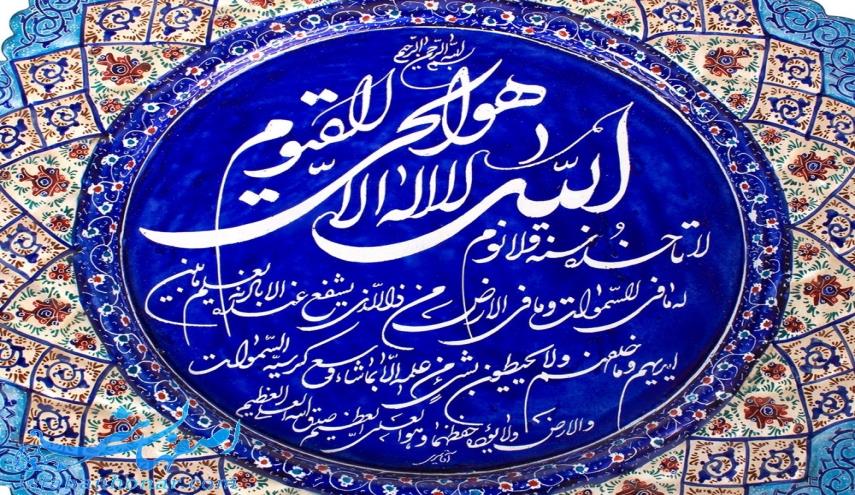 بسم الله الرحمن الرحیم
الله لا اله الا هو الحی القیوم
لا تاخذه سنة ولا نوم
له ما فی السموات و ما فی الارض من ذا الذی یشفع عنده الا باذنه یعلم ما بین
ایدیهم و ما خلفهم ولا یحیطون بشیء من علمه الا بما شاء وسع کرسیه السموات
والارض ولا یؤده حفظهما و هو العلی العظیم صدق الله العلی العظیم